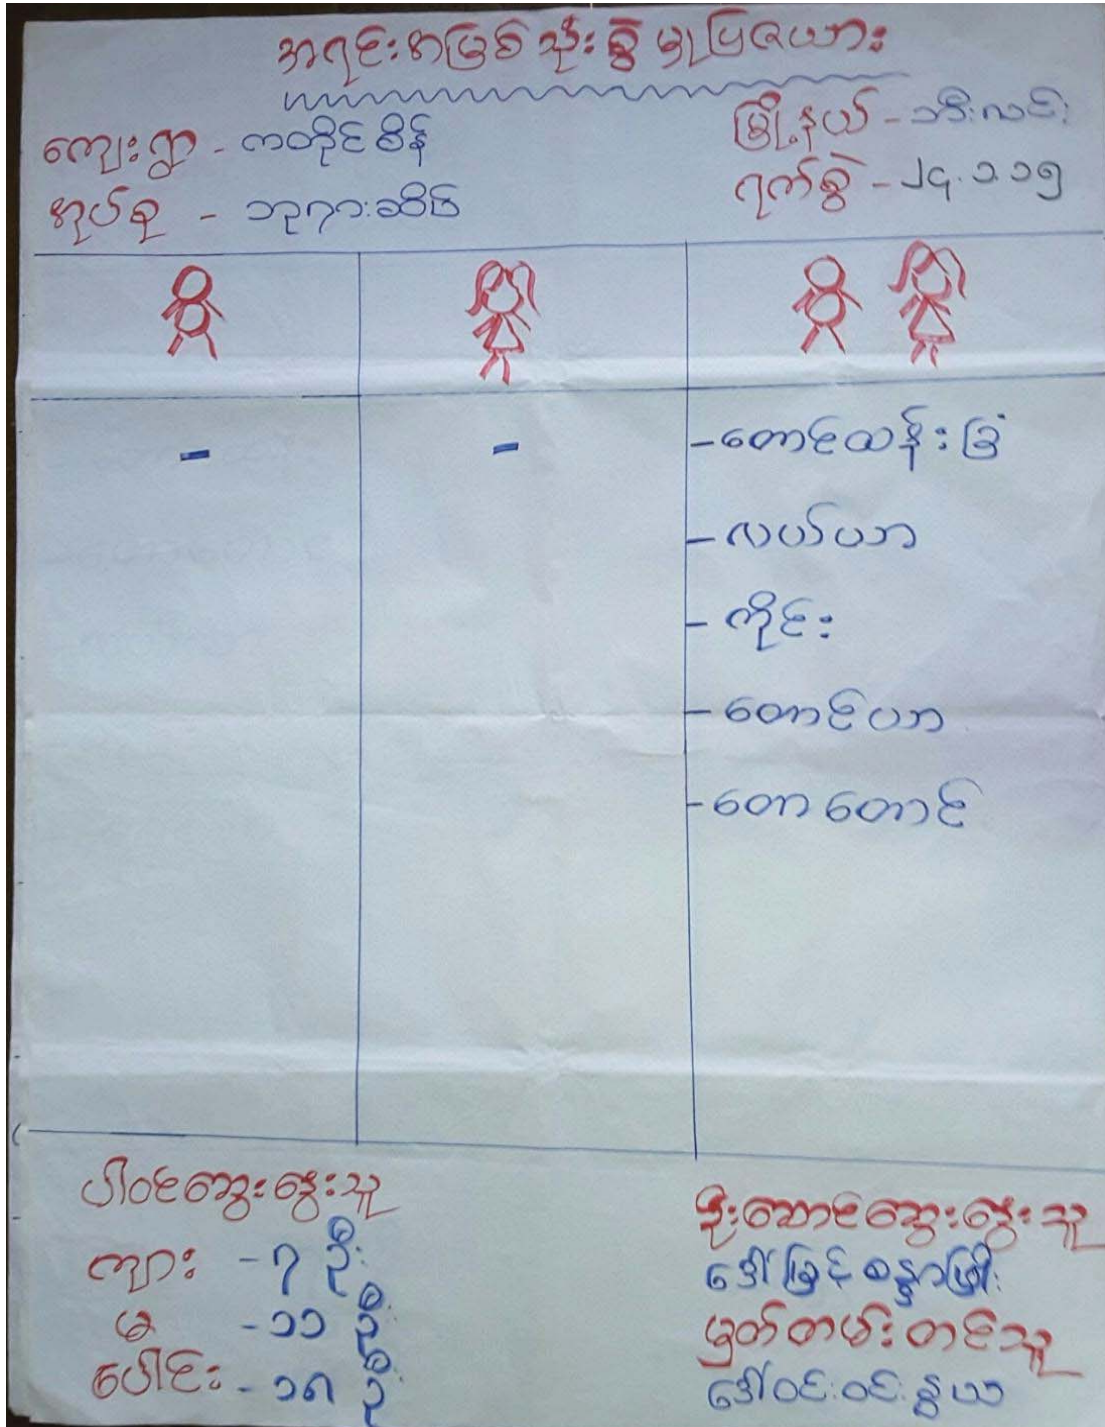 အရင်းအမြစ်သုံးစွဲမှုပြဇယား
ကျေးရွာ - ကတိုင်စိန်
မြို့နယ် - ဘီးလင်း
အုပ်စု - ဘုရားဆိပ်
ရက်စွဲ - ၂၄.၁၁၅
-
-
- တောင်ထန်းခြံ
- လယ်ယာ
- ကိုင်း
- တောင်ယာ
- တောတောင်
ပါဝင်ဆွေးနွေးသူ
ကျား - ၇ ဦး
မ - ၁၁ ဦး
ပေါင်း - ၁၈ ဦး
ဦးဆောင်ဆွေးနွေးသူ
ဒေါ်မြင့်စန္ဒာဖြိုး
မှတ်တမ်းတင်သူ
ဒေါ်ဝင်းဝင်းနွယ်